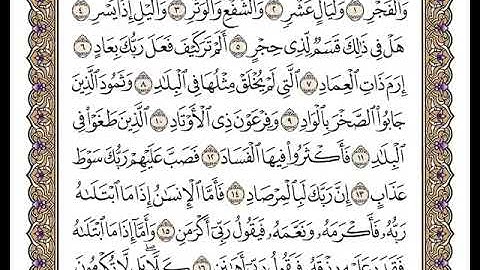 وَٱلۡفَجۡرِ ١ وَلَيَالٍ عَشۡرٖ ٢ وَٱلشَّفۡعِ وَٱلۡوَتۡرِ ٣ وَٱلَّيۡلِ إِذَا يَسۡرِ ٤
هَلۡ فِي ذَٰلِكَ قَسَمٞ لِّذِي حِجۡرٍ ٥ أَلَمۡ تَرَ كَيۡفَ فَعَلَ رَبُّكَ بِعَادٍ ٦
إِرَمَ ذَاتِ ٱلۡعِمَادِ ٧ ٱلَّتِي لَمۡ يُخۡلَقۡ مِثۡلُهَا فِي ٱلۡبِلَٰدِ ٨ وَثَمُودَ ٱلَّذِينَ
جَابُواْ ٱلصَّخۡرَ بِٱلۡوَادِ ٩ وَفِرۡعَوۡنَ ذِي ٱلۡأَوۡتَادِ ١٠ ٱلَّذِينَ طَغَوۡاْ فِي
ٱلۡبِلَٰدِ ١١ فَأَكۡثَرُواْ فِيهَا ٱلۡفَسَادَ ١٢ فَصَبَّ عَلَيۡهِمۡ رَبُّكَ سَوۡطَ
عَذَابٍ ١٣ إِنَّ رَبَّكَ لَبِٱلۡمِرۡصَادِ ١٤ فَأَمَّا ٱلۡإِنسَٰنُ إِذَا مَا ٱبۡتَلَىٰهُ
رَبُّهُۥ فَأَكۡرَمَهُۥ وَنَعَّمَهُۥ فَيَقُولُ رَبِّيٓ أَكۡرَمَنِ ١٥ وَأَمَّآ إِذَا مَا ٱبۡتَلَىٰهُ
فَقَدَرَ عَلَيۡهِ رِزۡقَهُۥ فَيَقُولُ رَبِّيٓ أَهَٰنَنِ ١٦ كَلَّاۖ بَل لَّا تُكۡرِمُونَ